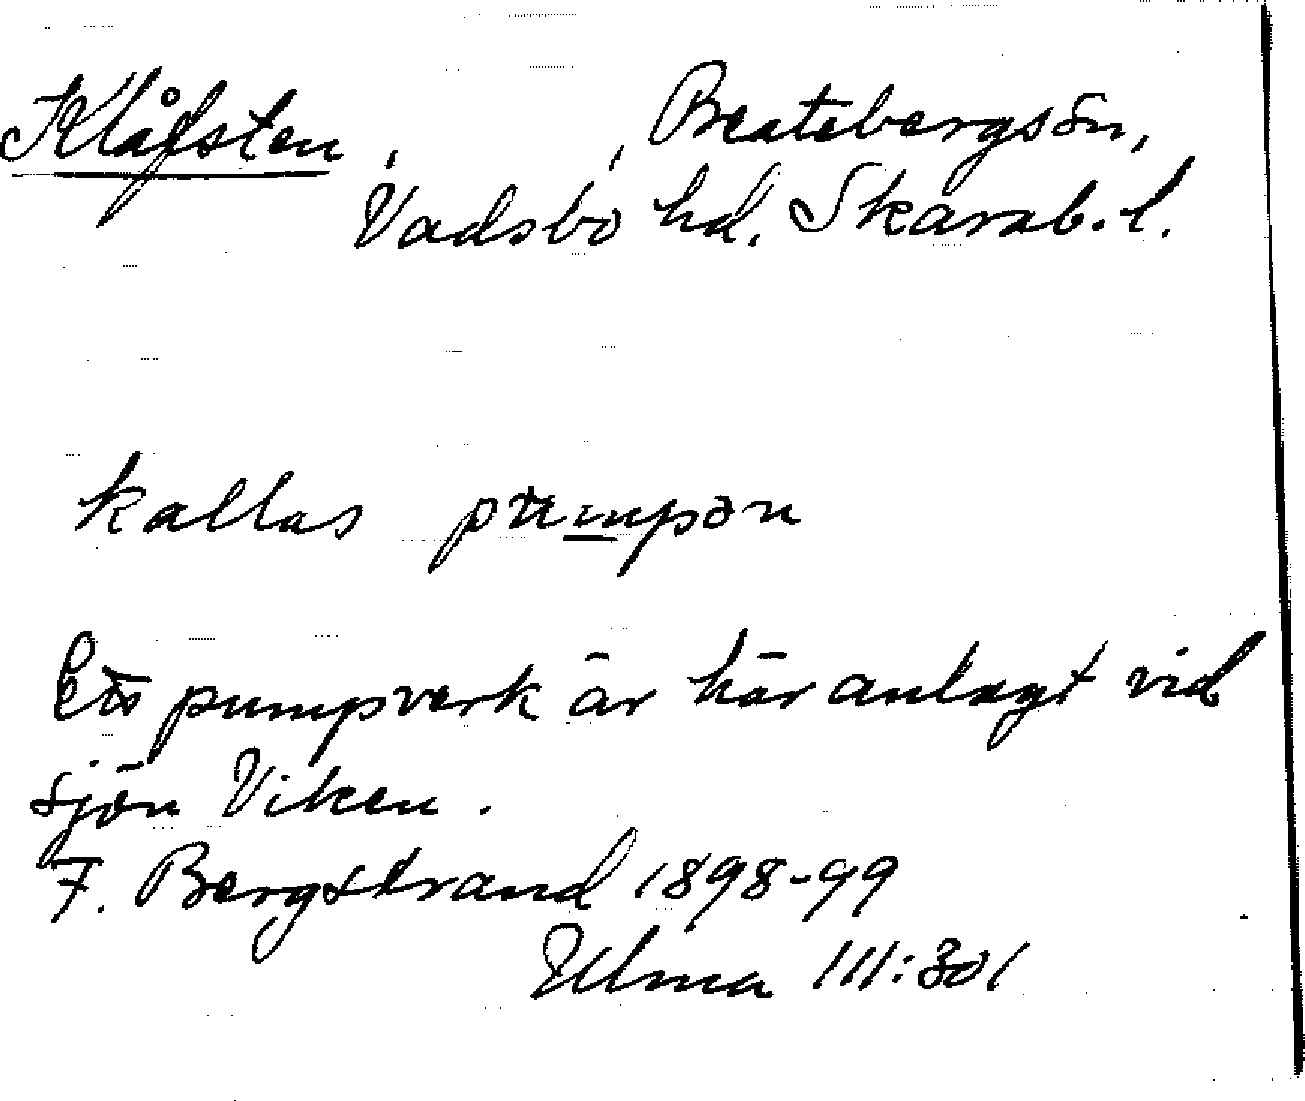 Klåfsten , , Beatebergs sn,
Vadsbo hd. Skarab. l.
kallas
Ett pumpverk är här anlagt vid
sjön Viken.
F. Bergstrand 1898-99
Ulma 111:301